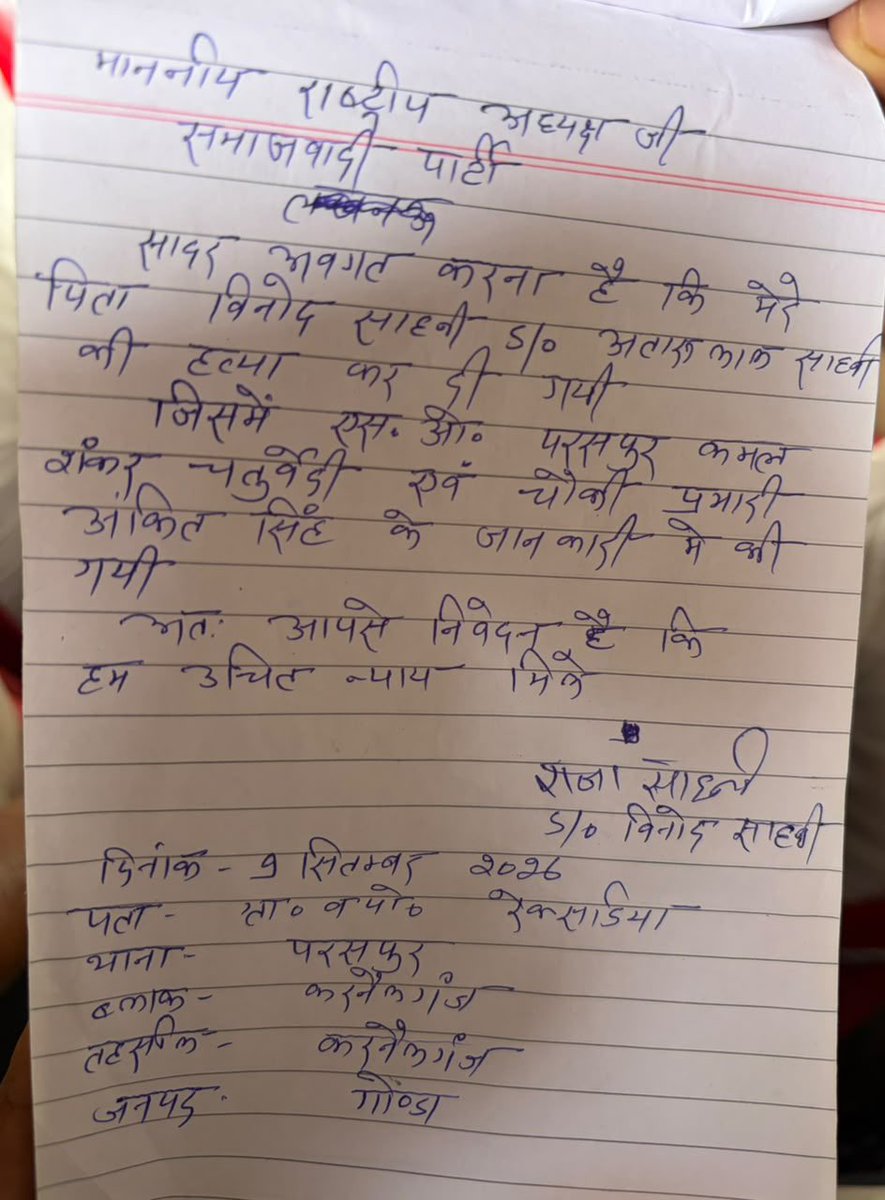 माननीय राष्ट्रीय अध्यक्ष जी
समाजवादी पार्टी
लखनऊ
सादर अवगत करना है कि मेरे
पिता विनोद साहनी S/० अतारू लाल साहनी
की हत्या कर दी गयी
जिसमें एस. ओ. परसपुर कमल
शंकर चतुर्वेदी एवं चौकी प्रभारी
अंकित सिंह के जानकारी मे की
गयी
अतः आपसे निवेदन है कि
हम उचित न्याय मिले
साहनी
S/० विनोद साहनी
दिनांक - 9 सितम्बर २०२६
पता - ग्रा० व पो०
थाना - परसपुर
ब्लाक - करनैलगंज
तहसील - करनैलगंज
जनपद. गोण्डा